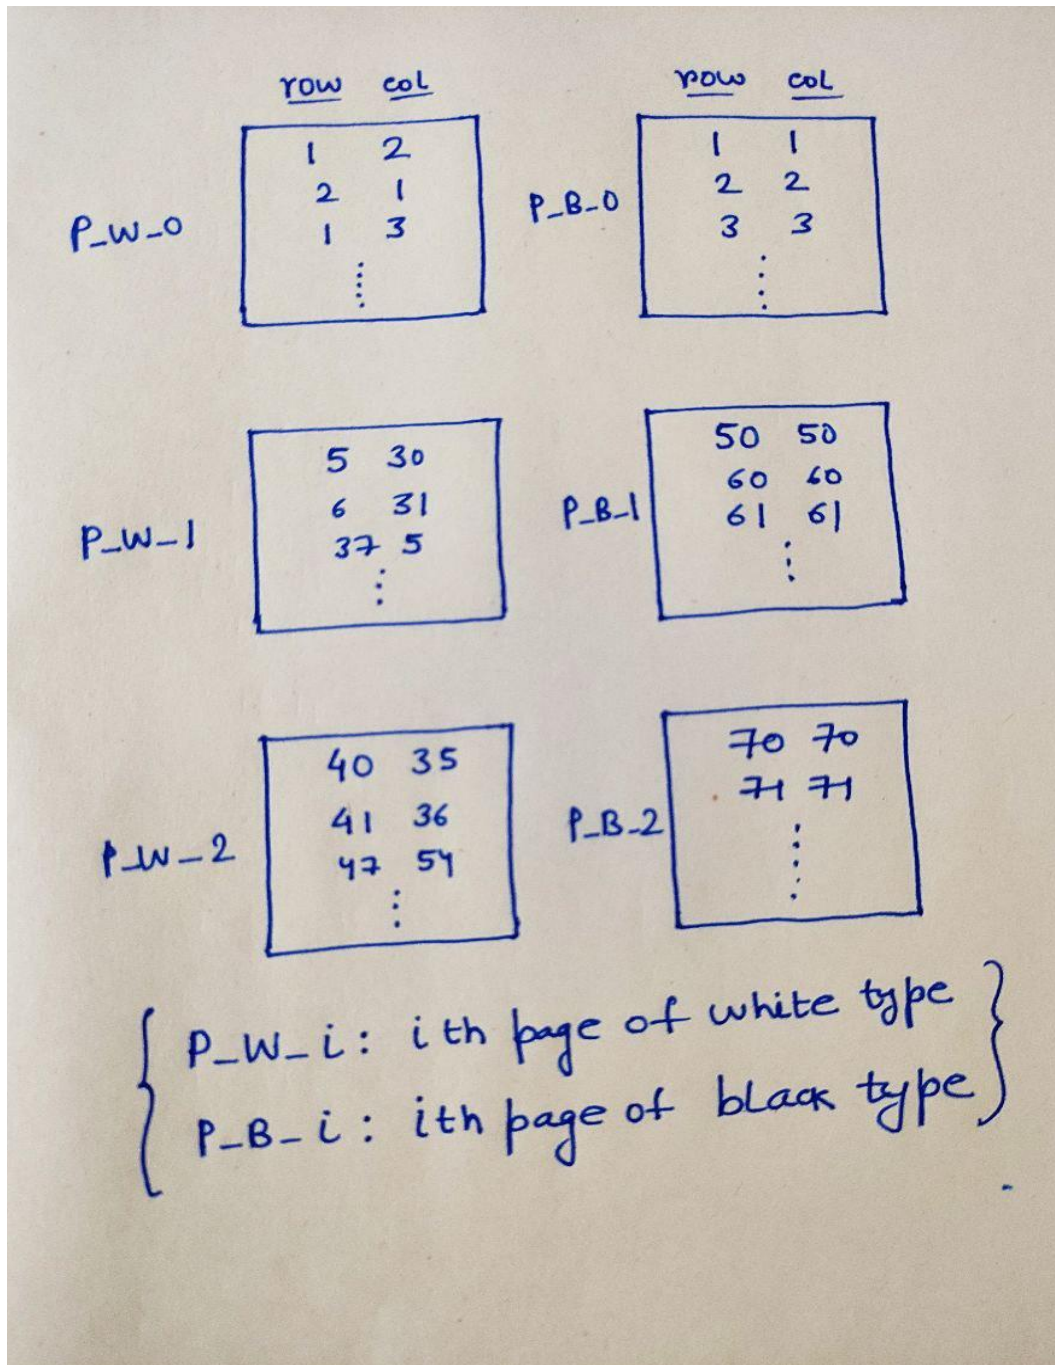 row col
1 2
2 1
1 3
P_W_0
row col
1 1
2 2
3 3
P_B_0
5 30
6 31
37 5
P_W_1
50 50
60 60
61 61
P_B_1
40 35
41 36
47 54
P_W_2
70 70
71 71
P_B_2
P_W_i: ith page of white type
P_B_i: ith page of black type